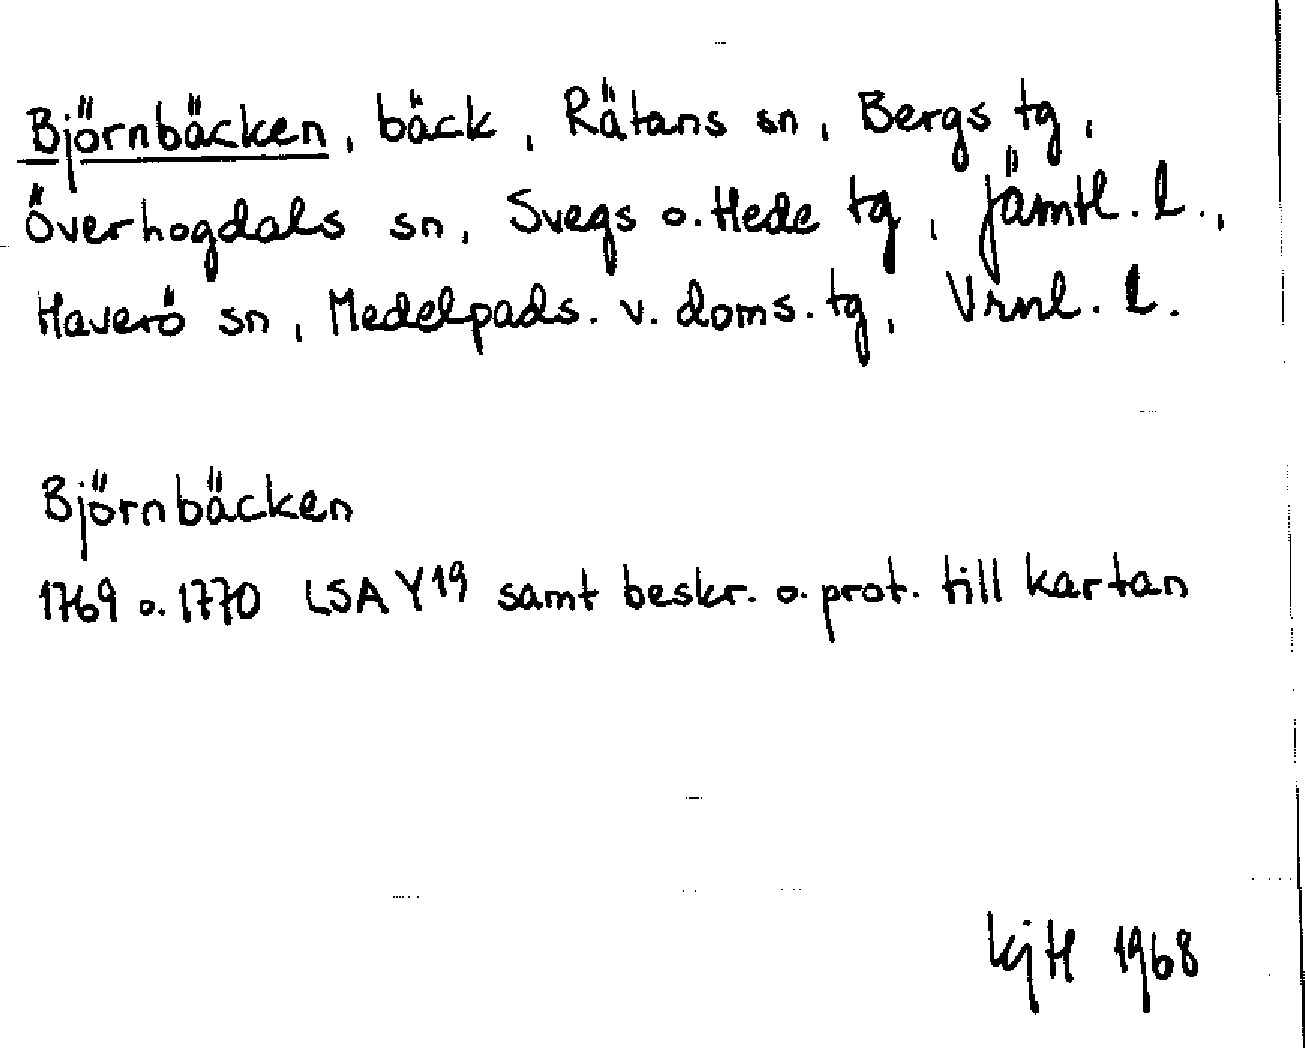 Björnbäcken, bäck, Rätans sn, Bergs tg,
Överhogdals sn, Svegs o. Hede tg, Jämtl. l.,
Haverö sn, Medelpads. v. doms. tg, Vrnl. l.
Björnbäcken
1769 o. 1770 LSA Y19 samt beskr. o. prot. till kartan
KjH 1968